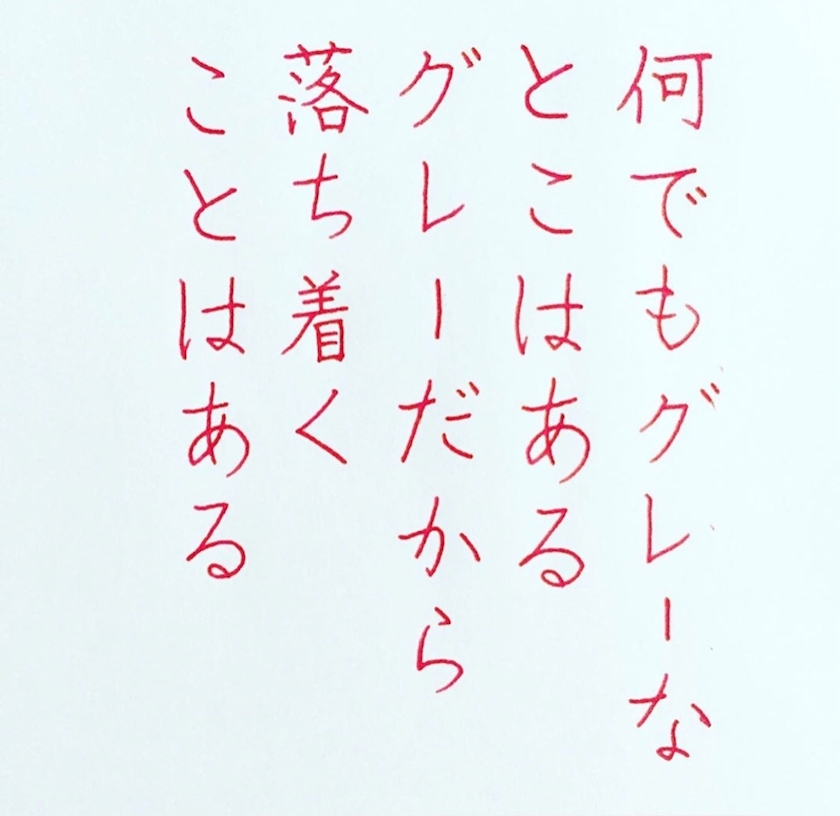 何でもグレーな
とこはある
グレーだから
落ち着く
ことはある